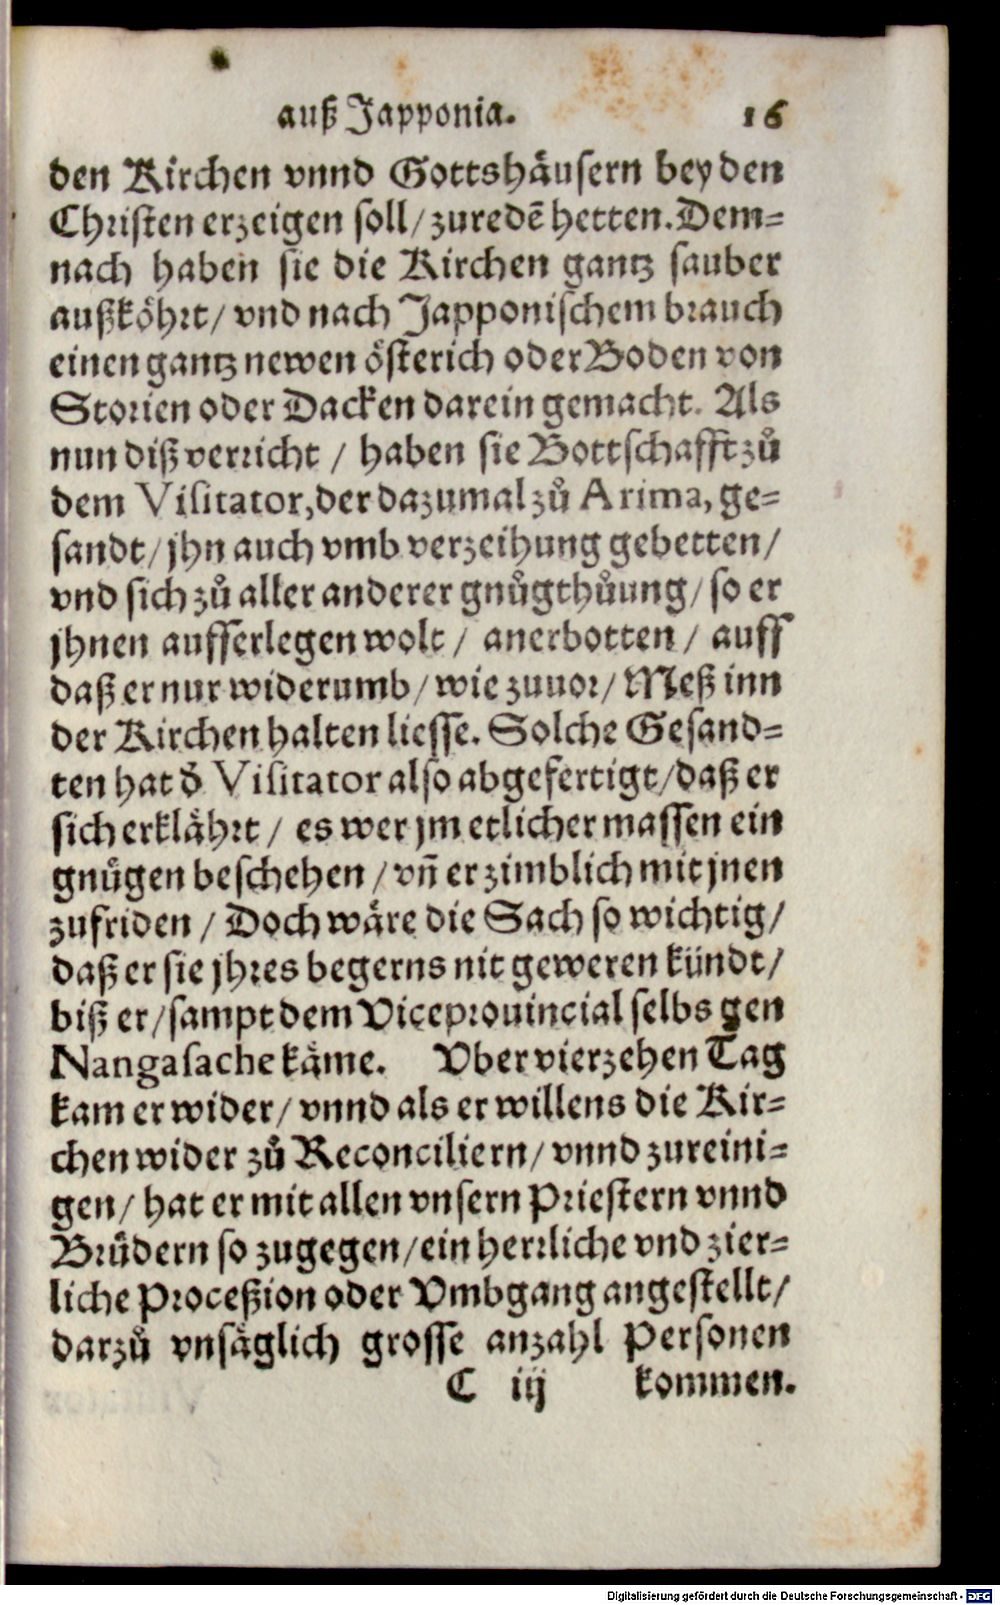 auß Japponia. 16
den Kirchen vnnd Gottshäusern bey den
Christen erzeigen soll/ zuredē hetten. Dem=
nach haben sie die Kirchen gantz sauber
außköhrt/ vnd nach Japponischem brauch
einen gantz newen österich oder Boden von
Storien oder Dacken darein gemacht. Als
nun diß verricht / haben sie Bottschafft zů
dem Visitator, der dazumal zů Arima, ge=
sandt/ jhn auch vmb verzeihung gebetten/
vnd sich zů aller anderer gnůgthůung/ so er
jhnen aufferlegen wolt / anerbotten / auff
daß er nur widerumb/ wie zuuor/ Meß inn
der Kirchen halten liesse. Solche Gesand=
ten hat d̃ Visitator also abgefertigt/ daß er
sich erklährt / es wer jm etlicher massen ein
gnügen beschehen / vñ er zimblich mit jnen
zufriden / Doch wäre die Sach so wichtig/
daß er sie jhres begerns nit geweren kündt/
biß er/ sampt dem Viceprouincial selbs gen
Nangasache käme. Vber vierzehen Tag
kam er wider/ vnnd als er willens die Kir=
chen wider zů Reconciliern/ vnnd zureini=
gen/ hat er mit allen vnsern Priestern vnnd
Brüdern so zugegen/ ein herrliche vnd zier=
liche Proceßion oder Vmbgang angestellt/
darzů vnsäglich grosse anzahl Personen
C iij kommen.
Digitalisierung gefördert durch die Deutsche Forschungsgemeinschaft - DFG